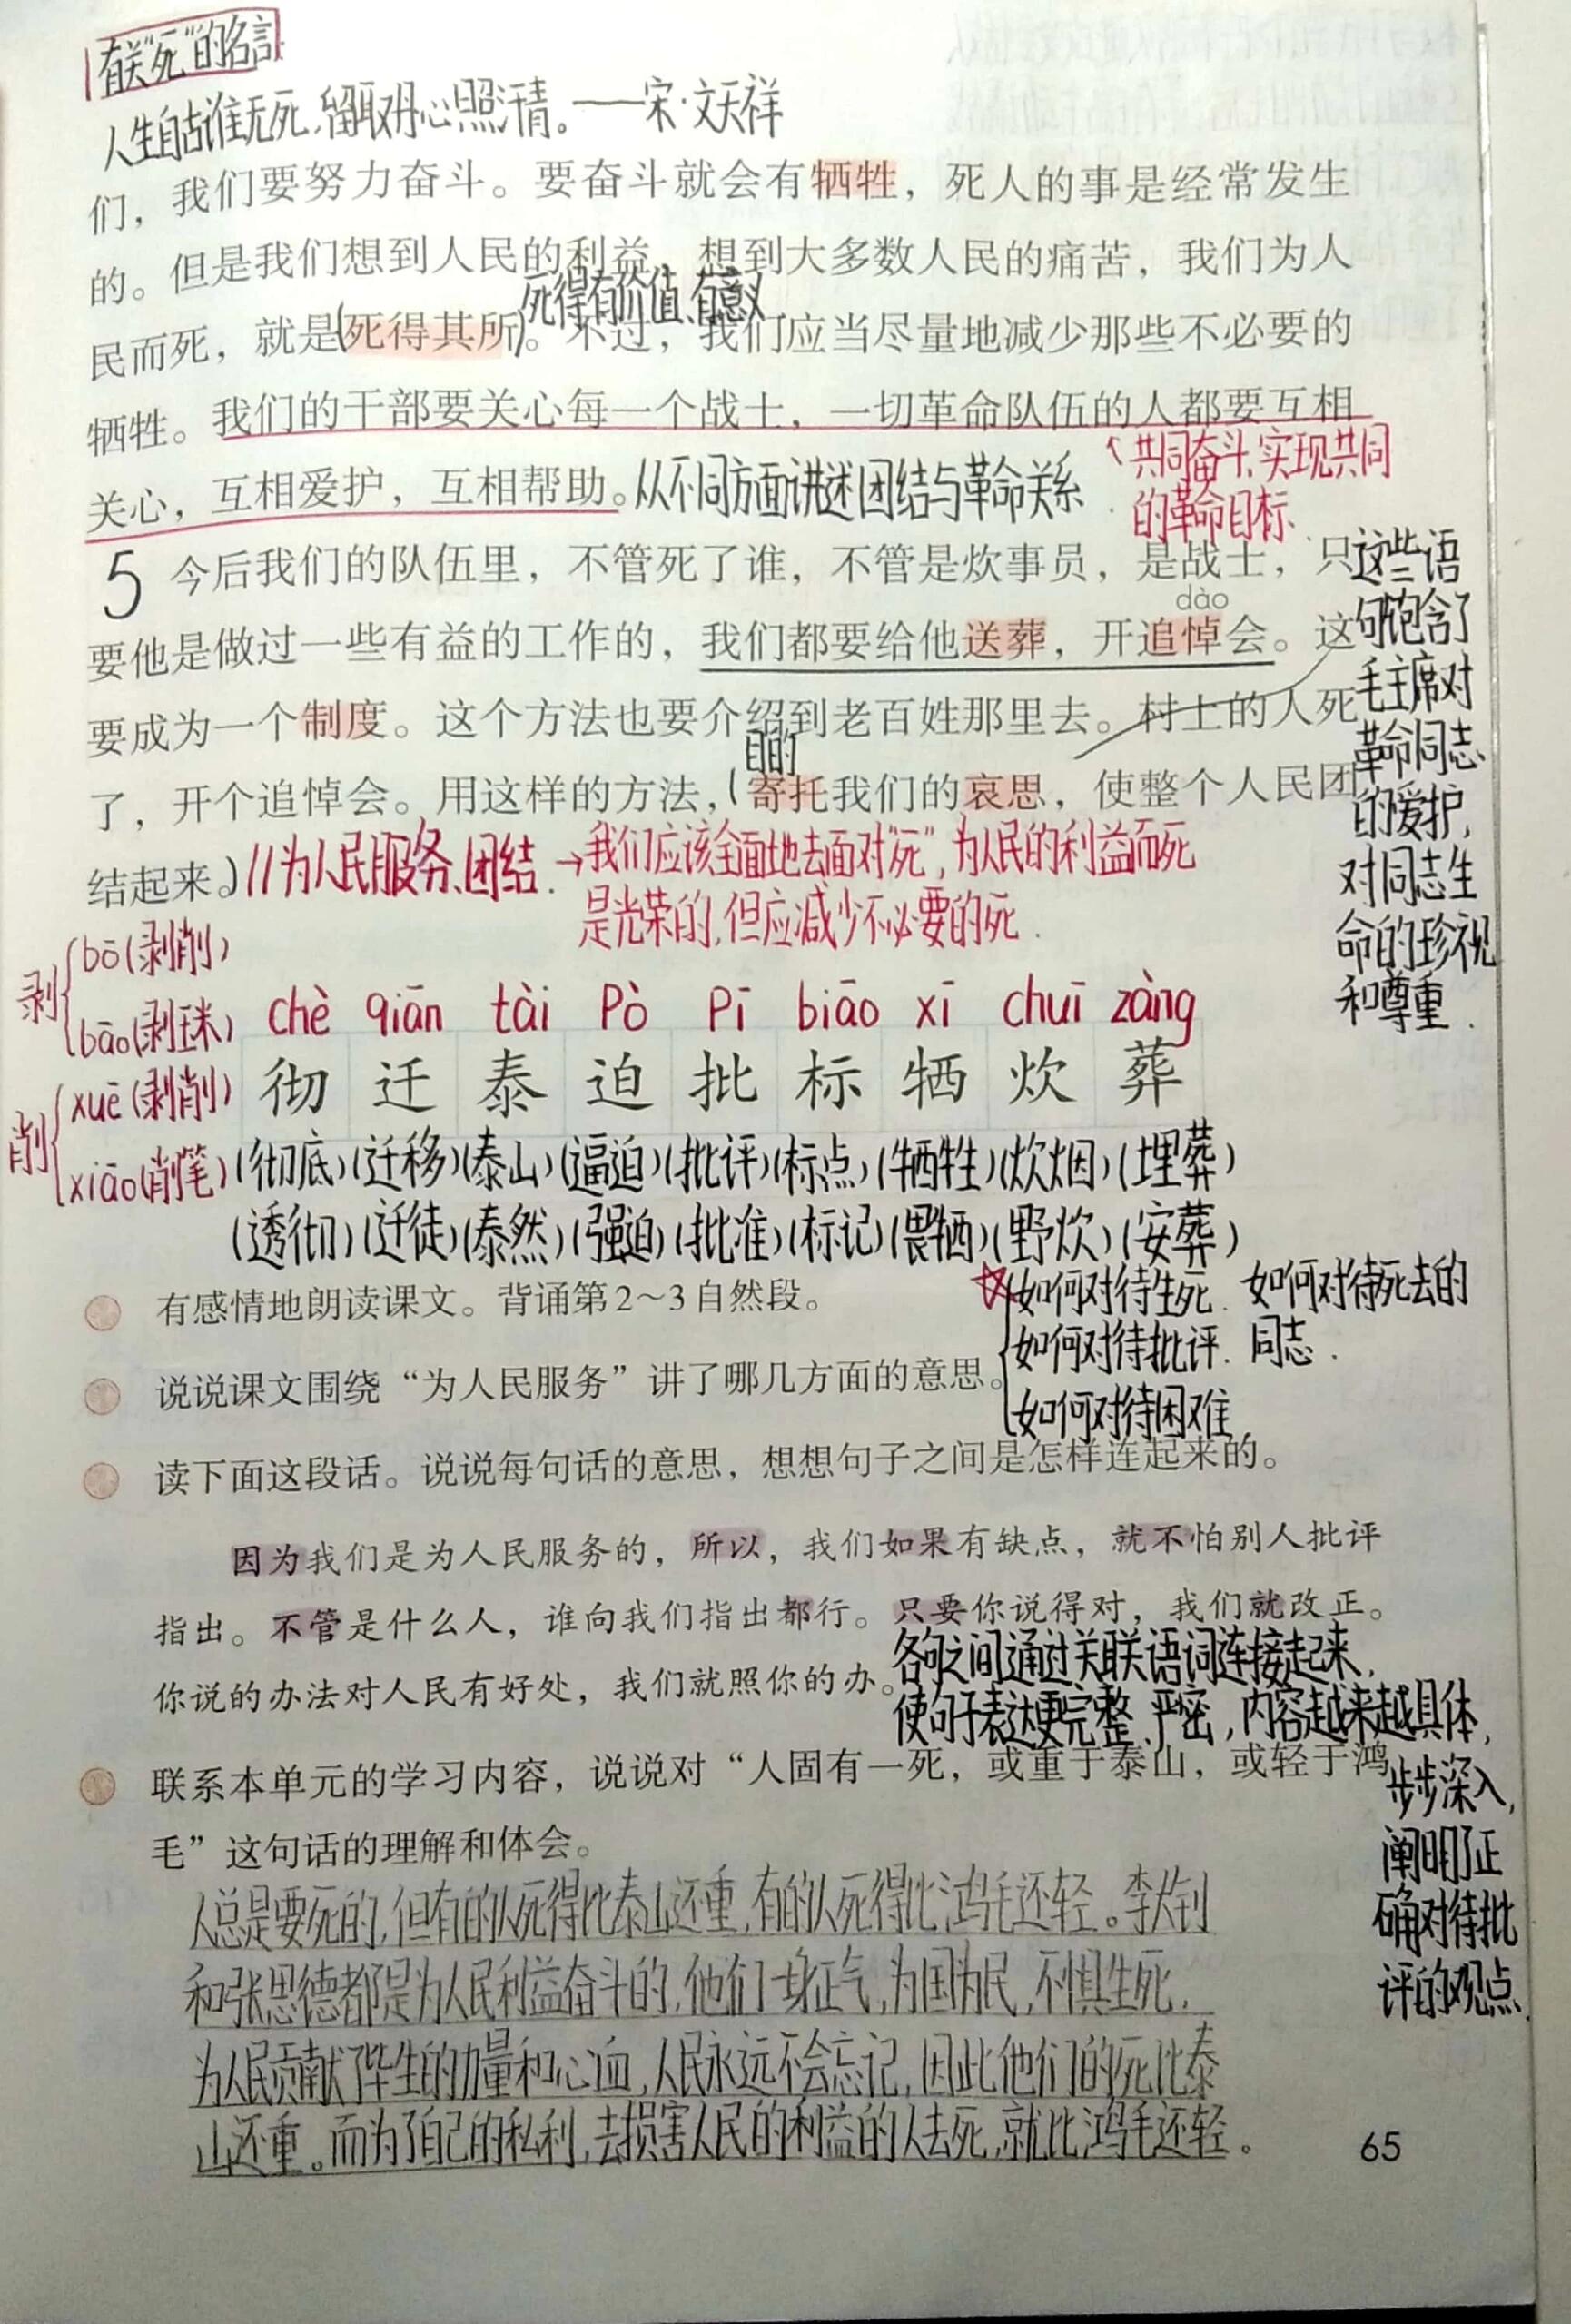 有关“死”的名言
人生自古谁无死,留取丹心照汗青。——宋·文天祥
们，我们要努力奋斗。要奋斗就会有牺牲，死人的事是经常发生
的。但是我们想到人民的利益，想到大多数人民的痛苦，我们为人
死得有价值、有意义
民而死，就是(死得其所)。不过，我们应当尽量地减少那些不必要的
牺牲。我们的干部要关心每一个战士，一切革命队伍的人都要互相
关心，互相爱护，互相帮助。从不同方面讲述团结与革命关系
共同奋斗、实现共同
的革命目标.
5 今后我们的队伍里，不管死了谁，不管是炊事员，是战士，只
dào
要他是做过一些有益的工作的，我们都要给他送葬，开追悼会。这
要成为一个制度。这个方法也要介绍到老百姓那里去。村上的人死
目的
了，开个追悼会。用这样的方法，(寄托我们的哀思，使整个人民团
结起来。)//为人民服务、团结.→我们应该全面地去面对“死”,为人民的利益而死
是光荣的,但应减少不必要的死.
这些语
句饱含了
毛主席对
革命同志
的爱护,
对同志生
命的珍视
和尊重.
剥{bō(剥削)
bāo(剥玉米)
削{xuē(剥削)
xiāo(削笔)
chè qiān tài Pò Pī biāo xī chuī zàng
彻 迁 泰 迫 批 标 牺 炊 葬
(彻底)(迁移)(泰山)(逼迫)(批评)(标点)(牺牲)(炊烟)(埋葬)
(透彻)(迁徙)(泰然)(强迫)(批准)(标记)(畏牺)(野炊)(安葬)
有感情地朗读课文。背诵第2～3自然段。
说说课文围绕“为人民服务”讲了哪几方面的意思。
☆{如何对待生死. 如何对待死去的
如何对待批评. 同志.
如何对待困难.
读下面这段话。说说每句话的意思，想想句子之间是怎样连起来的。
因为我们是为人民服务的，所以，我们如果有缺点，就不怕别人批评
指出。不管是什么人，谁向我们指出都行。只要你说得对，我们就改正。
你说的办法对人民有好处，我们就照你的办。
各句之间通过关联语词连接起来,
使句子表达更完整、严密,内容越来越具体,
步步深入,
阐明了正
确对待批
评的观点.
联系本单元的学习内容，说说对“人固有一死，或重于泰山，或轻于鸿
毛”这句话的理解和体会。
人总是要死的,但有的人死得比泰山还重,有的人死得比鸿毛还轻。李大钊
和张思德都是为人民利益奋斗的,他们一身正气,为国为民,不惧生死,
为人民贡献了毕生的力量和心血,人民永远不会忘记,因此他们的死比泰
山还重。而为了自己的私利,去损害人民的利益的人去死,就比鸿毛还轻。
65